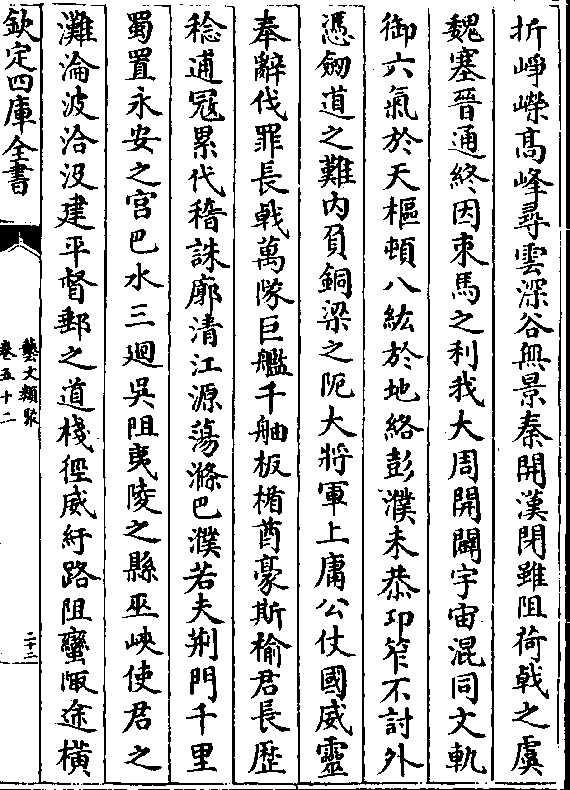 折崢嶸高峰尋雲深谷無景秦開漢閉雖阻荷戟之虞
魏塞晉通終因束馬之利我大周開闢宇宙混同文軌
御六氣於天樞頓八紘於地絡彭濮未恭卭笮不討外
憑劒道之難内負銅梁之阨大將軍上庸公仗國威靈
奉辭伐罪長戟萬隊巨艦千舳板楯酋豪斯榆君長歴
稔逋冦累代稽誅廓清江源蕩滌巴濮若夫荆門千里
蜀置永安之宫巴水三廻吳阻夷陵之縣巫峽使君之
灘淪波洽汲建平督郵之道棧徑威紆路阻蠻陬途橫
欽定四庫全書
藝文類聚
卷五十二
二十三